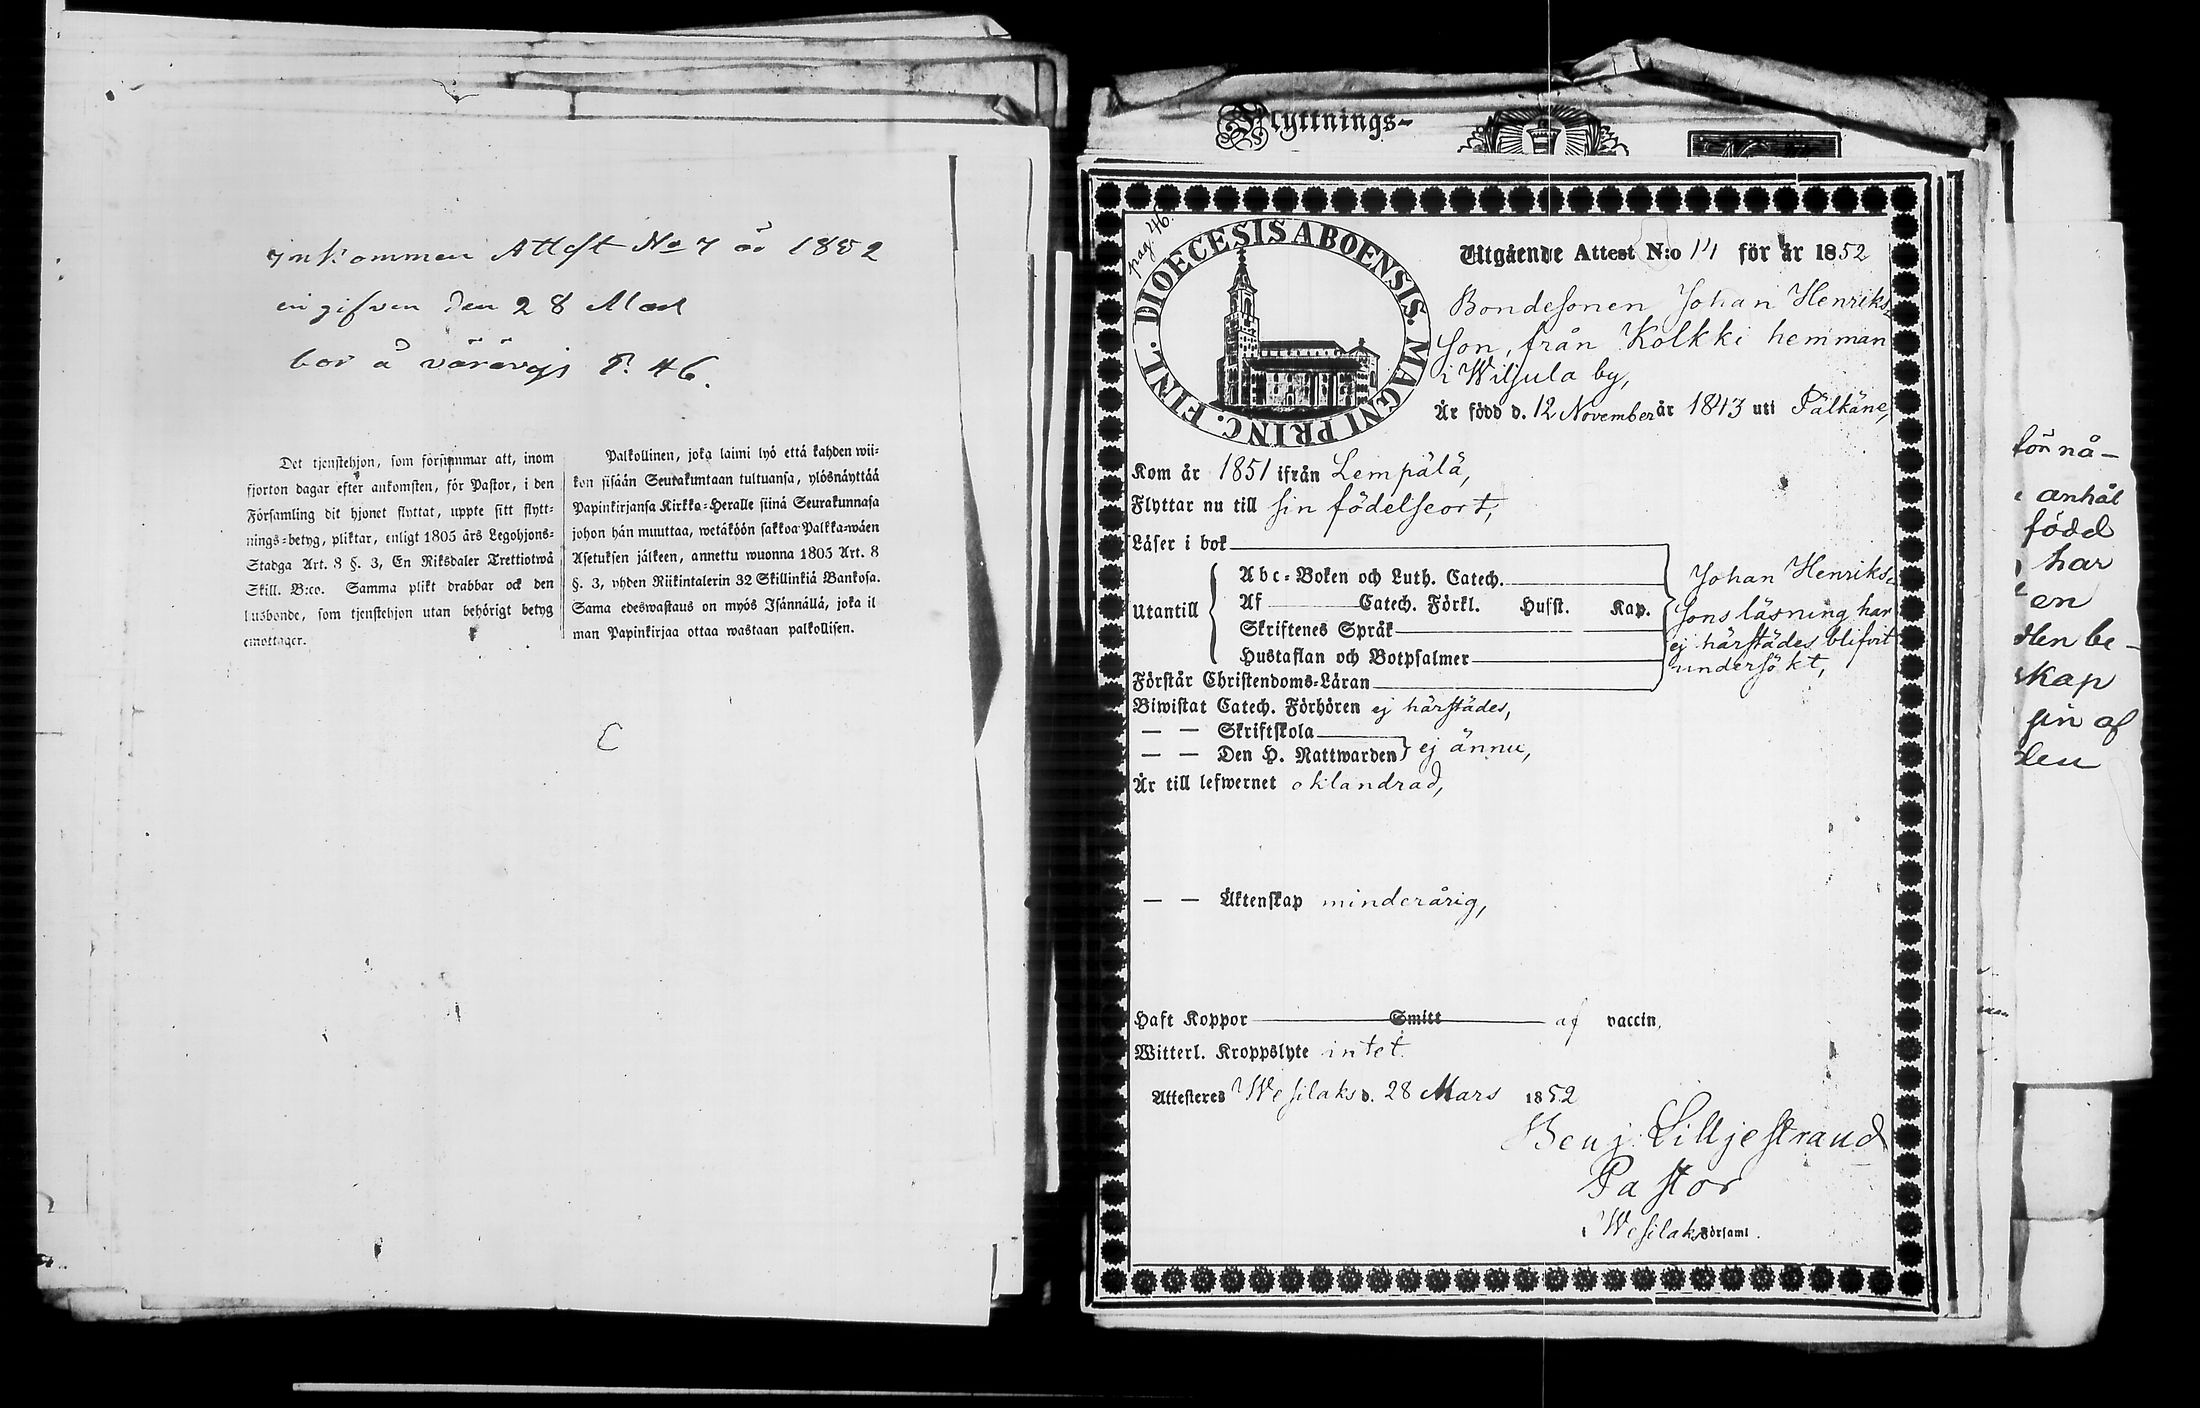 inkommen Attest No 7 år 1852
ingifven den 28 Mart
bor å P. 46.
Det tjenstehjon, som försummar att, inom
fjorton dagar efter ankomsten, för Pastor, i den
Församling dit hjonet flyttat, uppte sitt flytt-
nings-betyg, pliktar, enligt 1805 års Legohjons-
Stadga Art. 8 §. 3, En Riksdaler Trettiotwå
Skill. B:co. Samma plikt drabbar ock den
husbonde, som tjenstehjon utan behörigt betyg
emottager.
Palkollinen, joka laimi lyö että kahden wii-
kon sisään Seurakuntaan tultuansa, ylösnäyttää
Papinkirjansa Kirkko-Heralle siinä Seurakunnasa
johon hän muuttaa, wetäköön sakkoa Palkka-wäen
Asetuksen jälkeen, annettu wuonna 1805 Art. 8
§. 3, yhden Riikintalerin 32 Skillinkiä Bankosa.
Sama edeswastaus on myös Isännällä, joka il
man Papinkirjaa ottaa wastaan palkollisen.
C
Flyttnings-
pag. 46.
DIOECESIS ABOENSIS. MAGNI PRINC. FINL.
Utgående Attest N:o 14 för år 1852
Bondesonen Johan Henriks-
son, från Kolkki hemman
i Wilsula by,
Är född d. 12 November år 1843 uti Pälkäne,
Kom år 1851 ifrån Lempälä,
Flyttar nu till sin födelseort,
Läser i bok
Utantill
Abc-Boken och Luth. Catech.
Af Catech. Förkl. Husst. Kap.
Skriftenes Språk
Hustaflan och Botpsalmer
Förstår Christendoms-Läran
Johan Henriks-
sons läsning har
ej härstädes blifvit
undersökt,
Biwistat Catech. Förhören ej härstädes,
— — Skriftskola
— — Den H. Nattwarden ej ännu,
Är till lefwernet oklandrad,
— — Äktenskap minderårig,
Haft Koppor Smitt af vaccin,
Witterl. Kroppslyte intet.
Attesteres Wesilaks d. 28 Mars 1852
Benj. Lilljestrand
Pastor
i Wesilaks Församl.
för nå-
anhål
född
har
en
den be-
skap
sin af
den